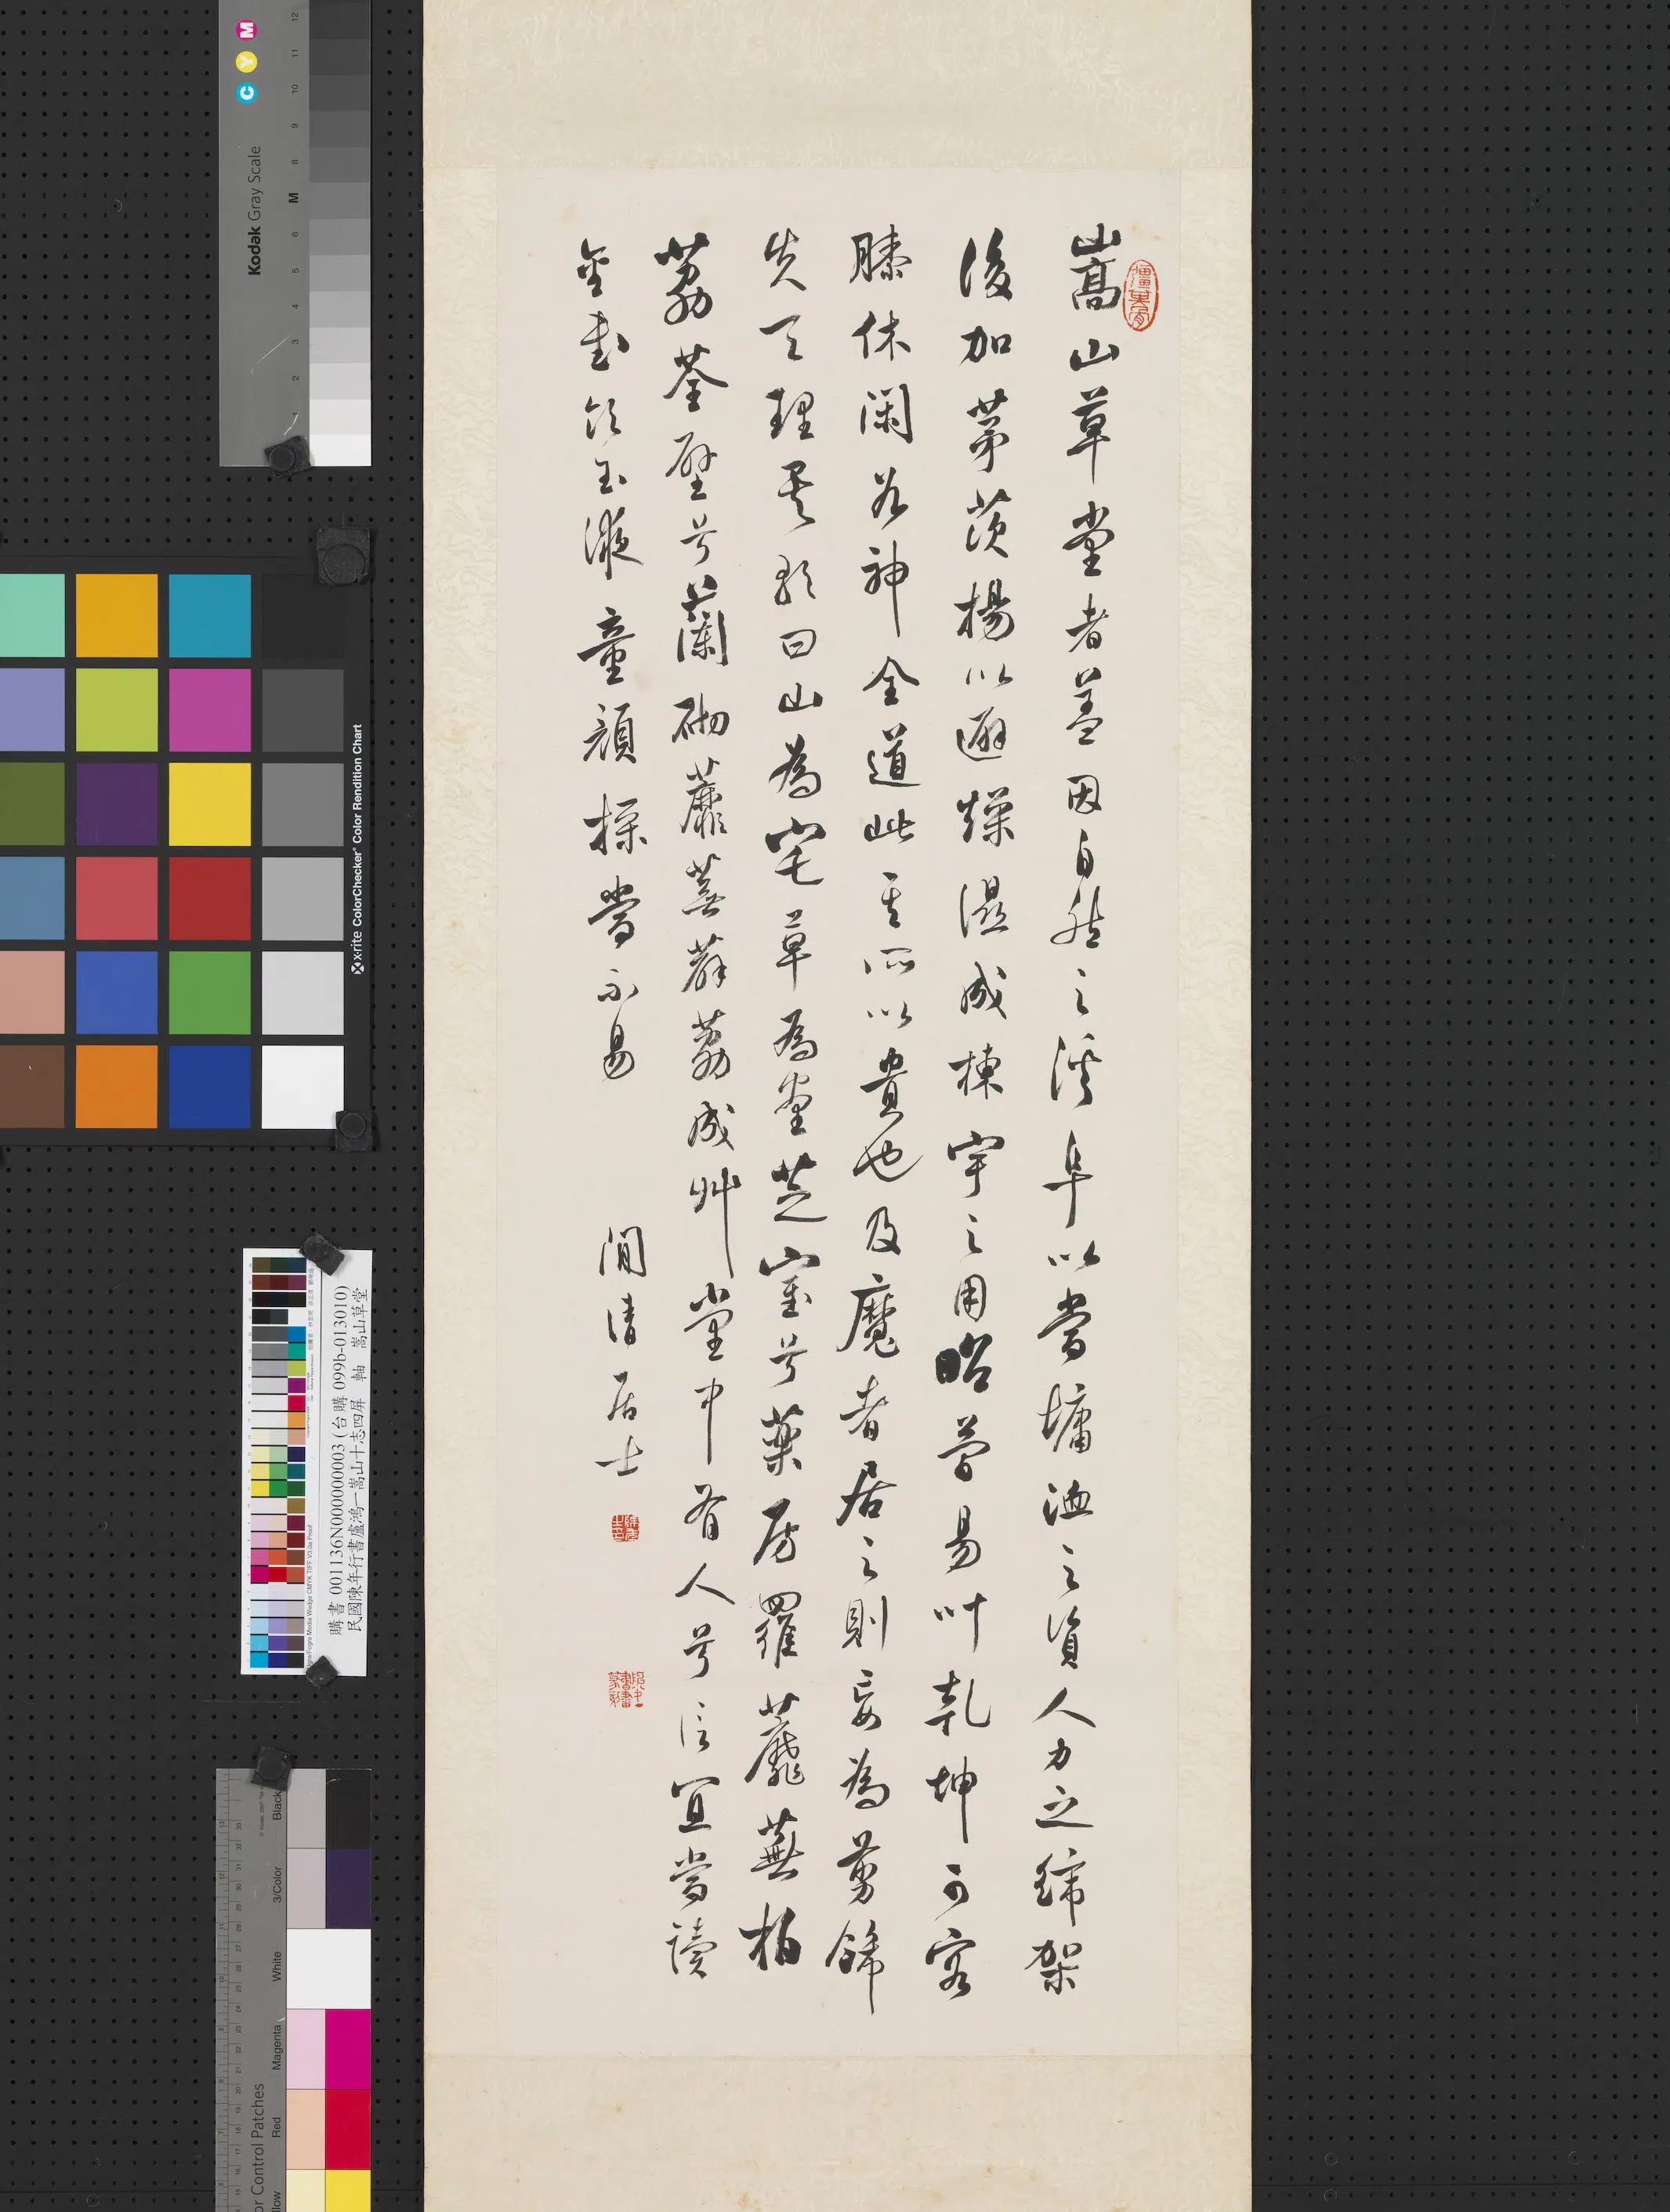 嵩山草堂者蓋因自然之溪阜以當墉洫之資人力之締架
後加茅茨楊以避燥濕成棟宇之用昭簡易叶乾坤可容
膝休閑谷神全道此其所以貴也及魔者居之則妄為剪飾
失天理矣歌曰山為宅草為堂芝室兮藥房羅蘼蕪柏
荔荃壁兮蘭砌蘼蕪薜荔成艸堂中有人兮信宜常讀
金書飲玉漿童顏操常不易
閒清居士
Kodak Gray Scale
C Y M
x-rite ColorChecker Color Rendition Chart
購書 001136N000000003 (台購 099b-013010)
民國陳年行書盧鴻一嵩山十志四屏 軸 嵩山草堂
or Control Patches
Black
3/Color
White
Magenta
Red